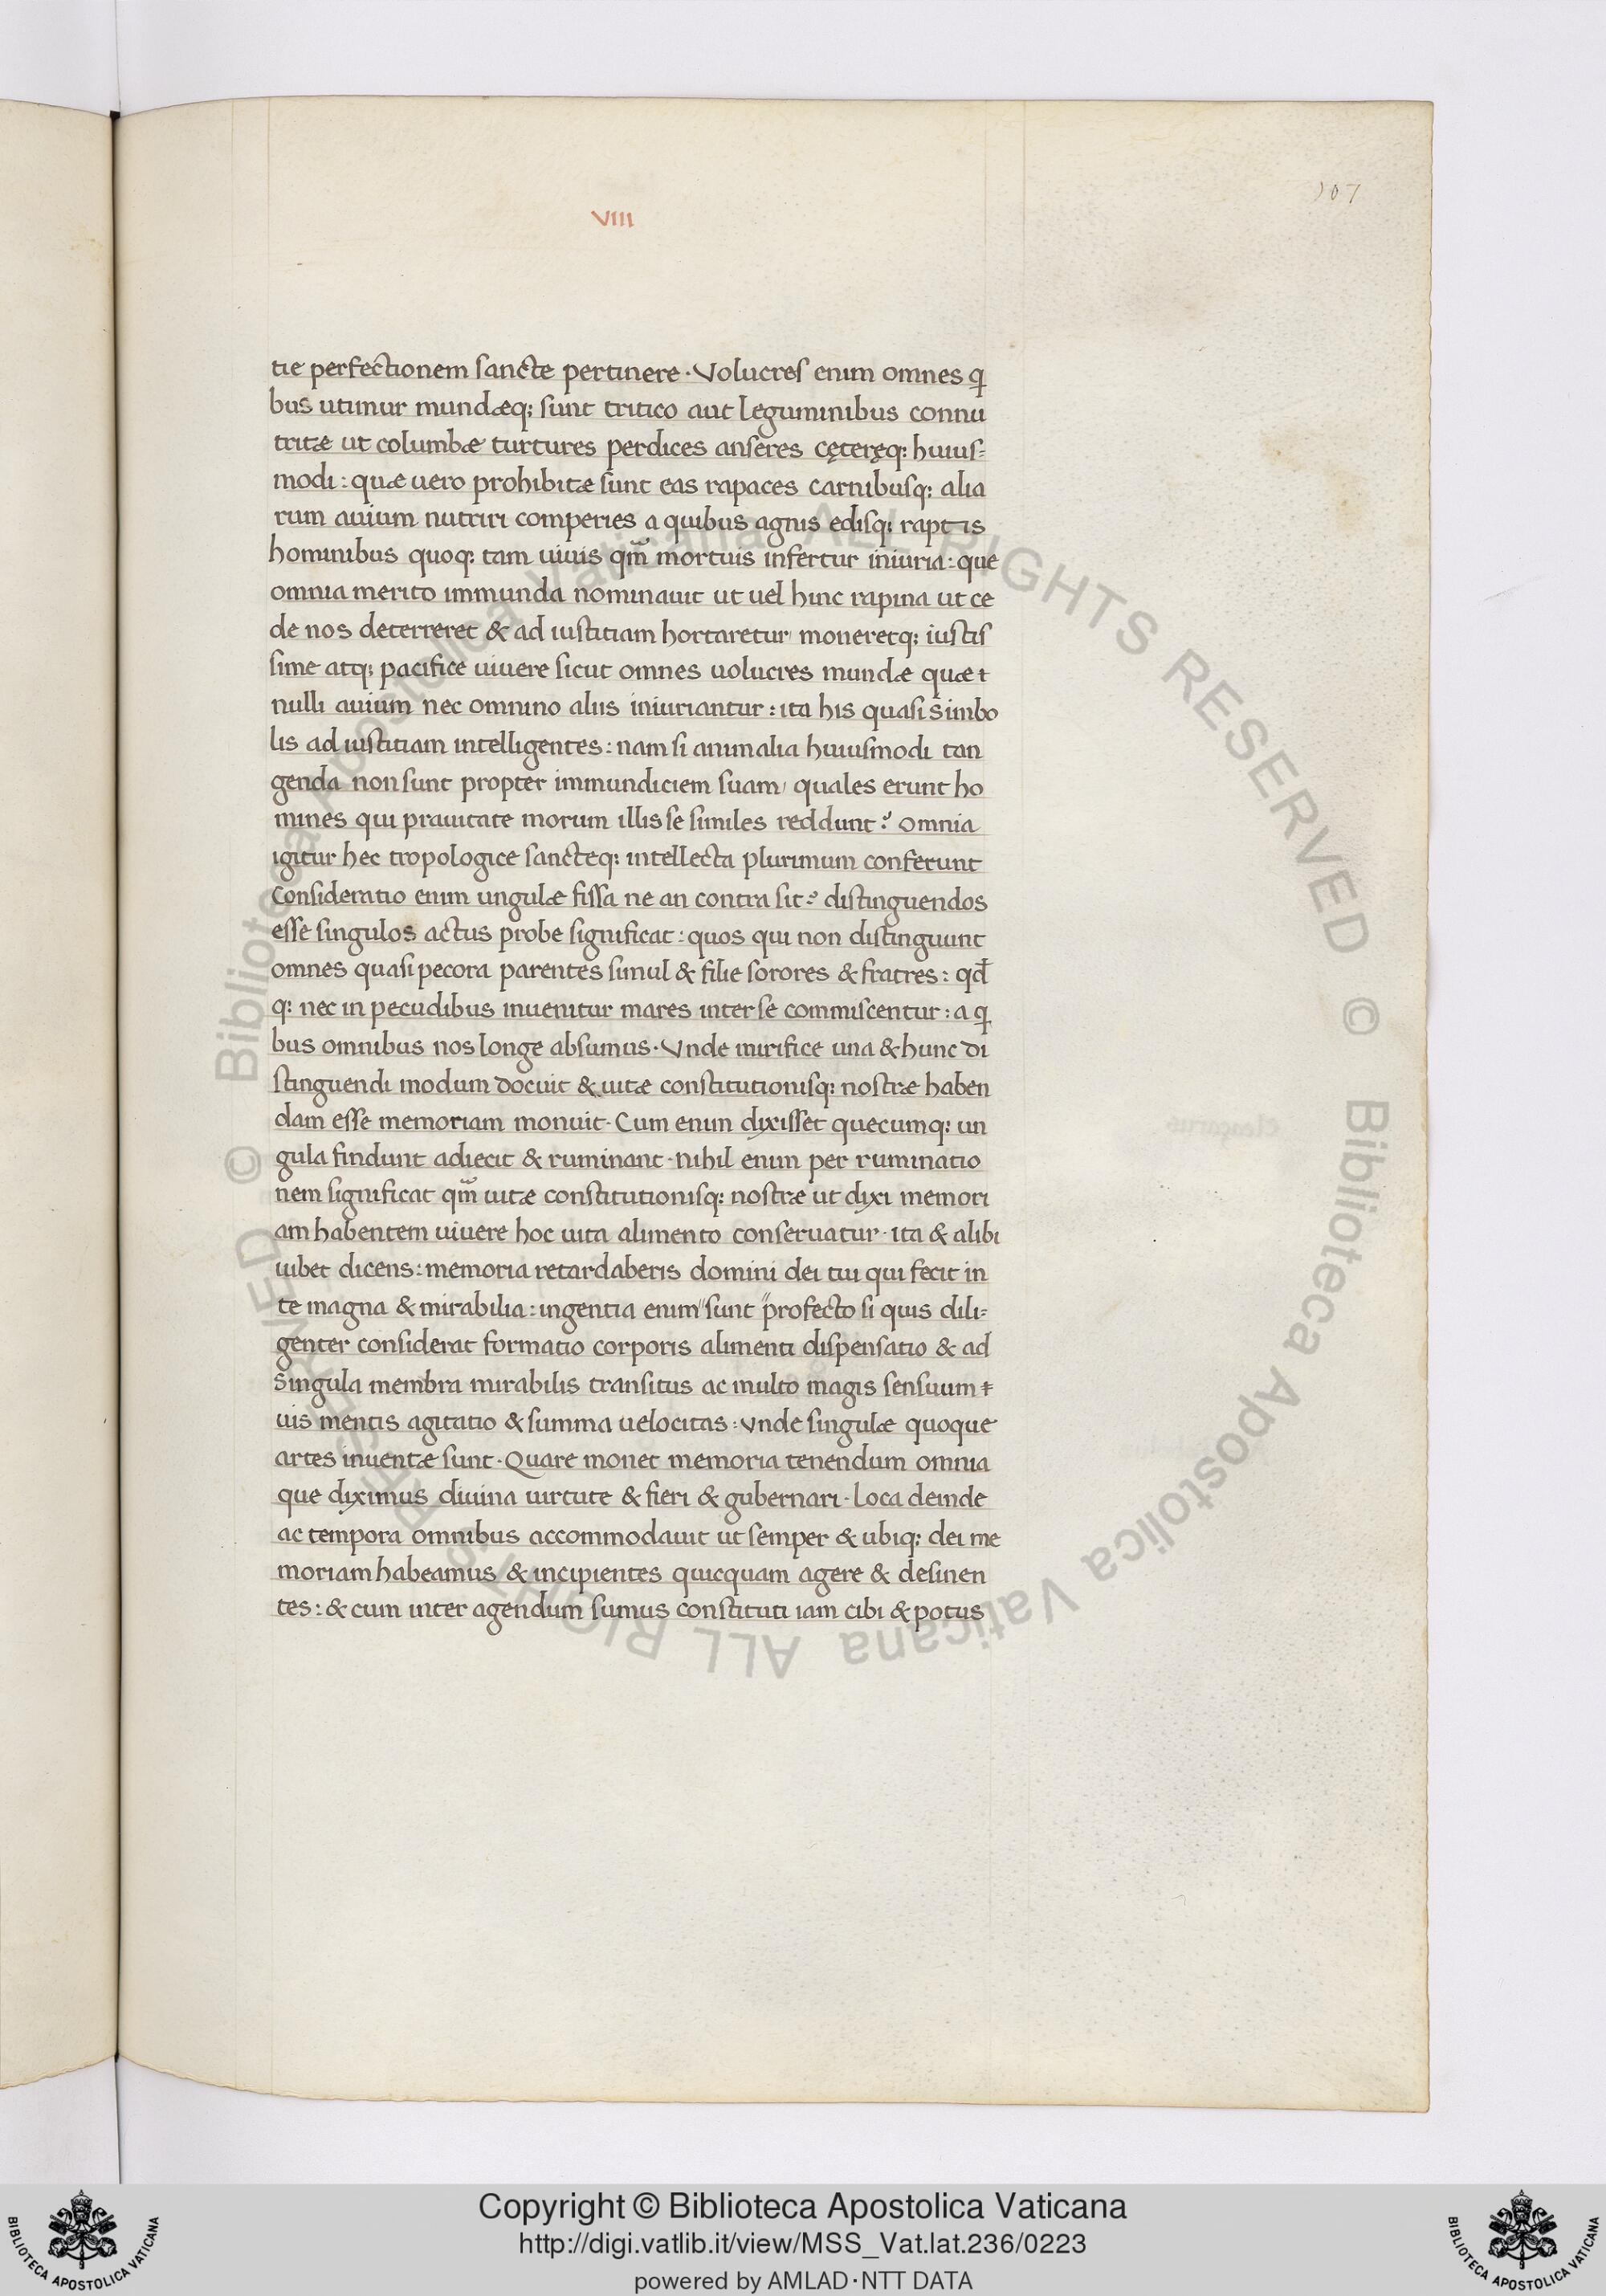 107
VIII
tie perfectionem sancte pertinere · Volucres enim omnes q̄
bus utimur mundæq; sunt tritico aut leguminibus connu
tritæ ut columbæ turtures perdices anseres cęteręq; huius-
modi : quæ uero prohibitæ sunt eas rapaces carnibusq; alia
rum auium nutriri comperies a quibus agnis edisq; raptis
hominibus quoq; tam uiuis qm̄ mortuis infertur iniuria : que
omnia merito immunda nominauit ut uel hinc rapina ut ce
de nos deterreret & ad iustitiam hortaretur / moneretq; iustis
sime atq; pacifice uiuere sicut omnes uolucres mundæ quæ t
nulli auium nec omnino aliis iniuriantur : ita his quasi simbo
lis ad iustitiam intelligentes : nam si animalia huiusmodi tan
genda non sunt propter immundiciem suam / quales erunt ho
mines qui prauitate morum illis se similes reddunt ? omnia
igitur hec tropologice sancteq; intellecta plurimum conferunt
Consideratio enim ungulæ fissa ne an contra sit ? distinguendos
esse singulos actus probe significat : quos qui non distinguunt
omnes quasi pecora parentes simul & filie sorores & fratres : qd̄
q; nec in pecudibus inuenitur mares inter se commiscentur : a q̄
bus omnibus nos longe absumus · Vnde mirifice una & hunc di
stinguendi modum docuit & uitæ constitutionisq; nostræ haben
dam esse memoriam monuit · Cum enim dixisset quecumq; un
gula findunt adiecit & ruminant · nihil enim per ruminatio
nem significat qm̄ uitæ constitutionisq; nostræ ut dixi memori
am habentem uiuere hoc uita alimento conseruatur · ita & alibi
iubet dicens : memoria retardaberis domini dei tui qui fecit in
te magna & mirabilia : ingentia enim " sunt " profecto si quis dili-
genter considerat formatio corporis alimenti dispensatio & ad
singula membra mirabilis transitus ac multo magis sensuum t
uis mentis agitatio & summa uelocitas : Vnde singulæ quoque
artes inuentæ sunt · Quare monet memoria tenendum omnia
que diximus diuina uirtute & fieri & gubernari · loca deinde
ac tempora omnibus accommodauit ut semper & ubiq; dei me
moriam habeamus & incipientes quicquam agere & desinen
tes : & cum inter agendum sumus constituti iam cibi & potus
© Biblioteca Apostolica Vaticana ALL RIGHTS RESERVED © Biblioteca Apostolica Vaticana ALL RIGHTS RESERVED
BIBLIOTECA APOSTOLICA VATICANA
Copyright © Biblioteca Apostolica Vaticana
http://digi.vatlib.it/view/MSS_Vat.lat.236/0223
powered by AMLAD·NTT DATA
BIBLIOTECA APOSTOLICA VATICANA